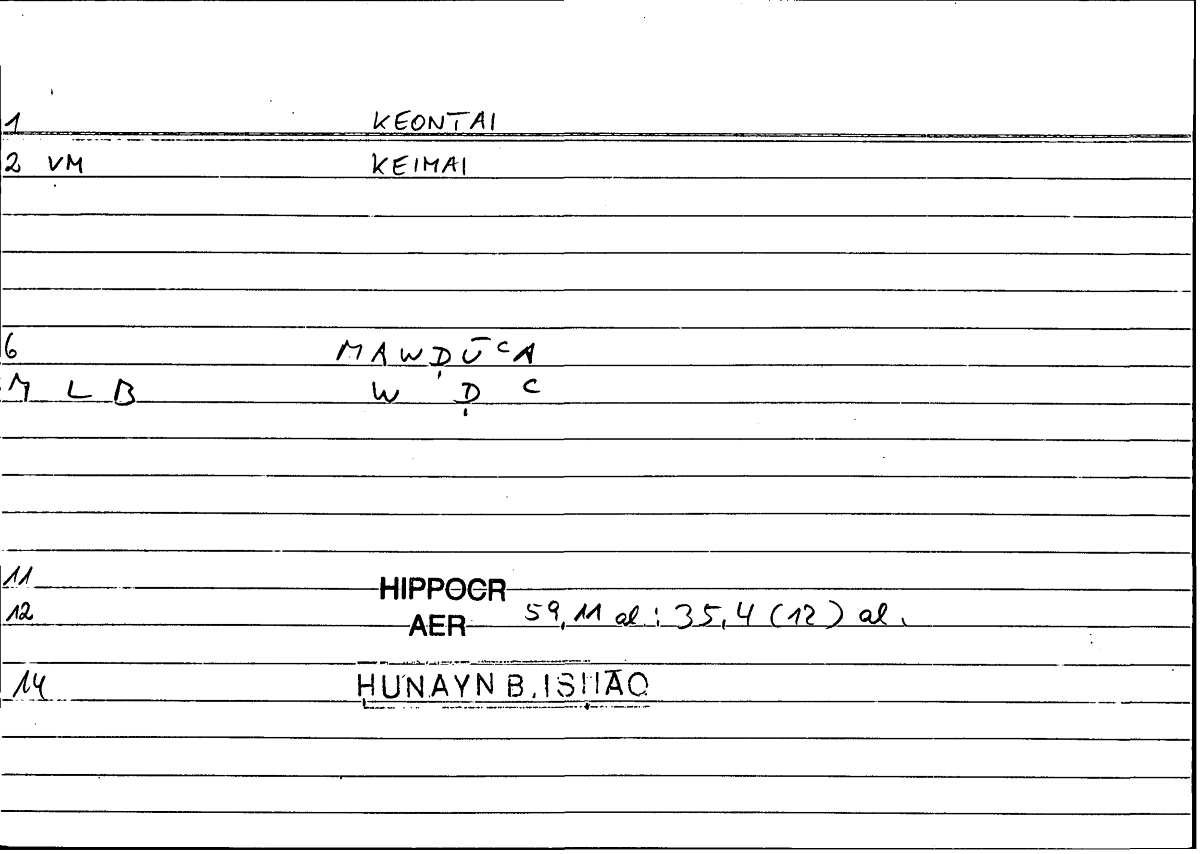 1 KEONTAI
2 VM KEIMAI
6 MAWḌŪᶜA
M L B W Ḍ ᶜ
11 HIPPOCR
12 AER 59,11 al : 35,4 (12) al.
14 ḤUNAYN B. ISḤĀQ